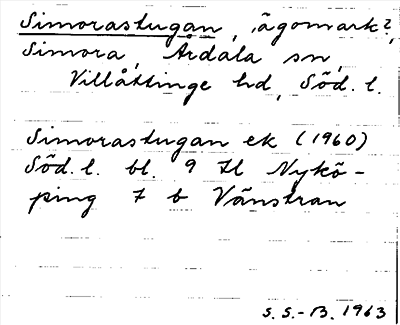 Simorastugan, ägomark?,
Simora, Årdala sn,
Villåttinge hd, Söd. l.
Simorastugan ek (1960)
Söd. l. bl. 9 H Nykö-
ping 7 b Vänstran
S. S.-B. 1963